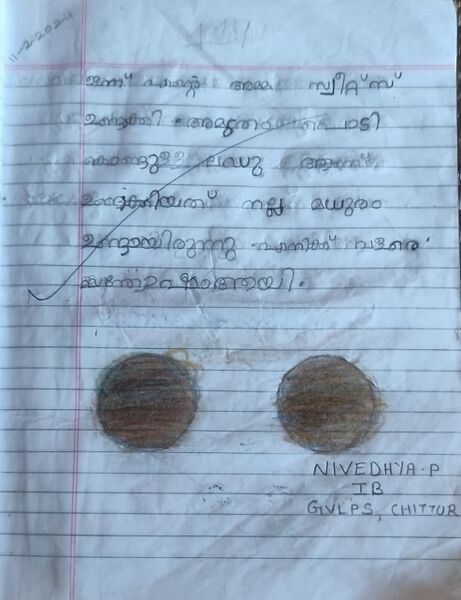 11-2-2024
ഇന്ന് എന്റെ അമ്മ സ്വീറ്റ്സ്
ഉണ്ടാക്കി അമൃതം പൊടി
കൊണ്ടുള്ള ലഡു ആണ്
ഉണ്ടാക്കിയത് നല്ല മധുരം
ഉണ്ടായിരുന്നു എനിക്ക് വളരെ
സന്തോഷമായി.
NIVEDHYA.P
IB
GVLPS, CHITTUR